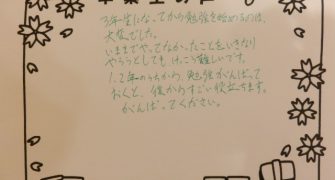 3年生になってから勉強を始めるのは、
大変でした。
いままでやってなかったことをいきなり
やろうとしても、けっこう難しいです。
1、2年のうちから、勉強がんばって
おくと、後からすごい役立ちます。
がんばってください。